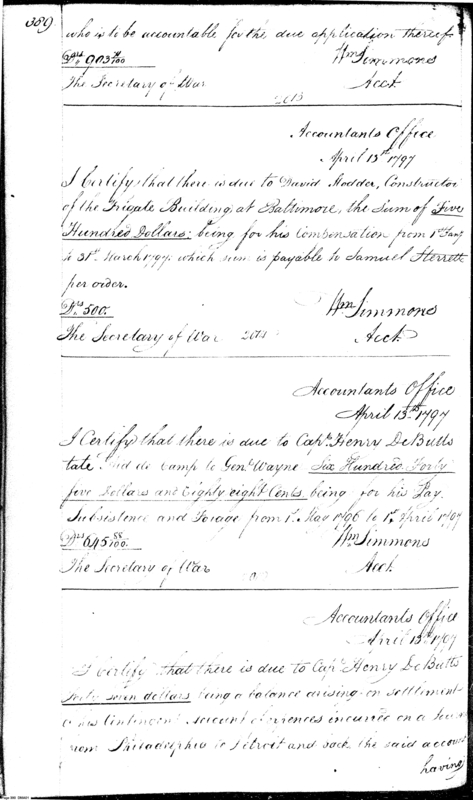 389
who is to be accountable for the due application thereof
Wm Simmons
The Secretary of War Acct.
Accountants Office
April 13th 1797
I Certify that there is due to David Stodder, Constructor
of the Frigate Building at Baltimore, the Sum of Five
Hundred Dollars; being for his Compensation from 1st Jany
to 31st March 1797, which sum is payable to Samuel Sterrett
per order.
Drs 500. Wm Simmons
The Secretary of War Acct.
Accountants Office
April 13th 1797
I Certify that there is due to Capn. Henry De Butts
late Aid de Camp to Genl. Wayne Six Hundred Forty
five Dollars and Eighty eight Cents, being for his Pay
Subsistence and Forage from 1st. May 1796 to 1st. April 1797
Drs 645 88/100. Wm Simmons
The Secretary of War Acct.
Accountants Office
April 13th 1797
I Certify that there is due to Capn. Henry De Butts
seven dollars being a balance arising on settlement
his Contingent account of expences incurred on a
from Philadelphia to Detroit and back the said account
having